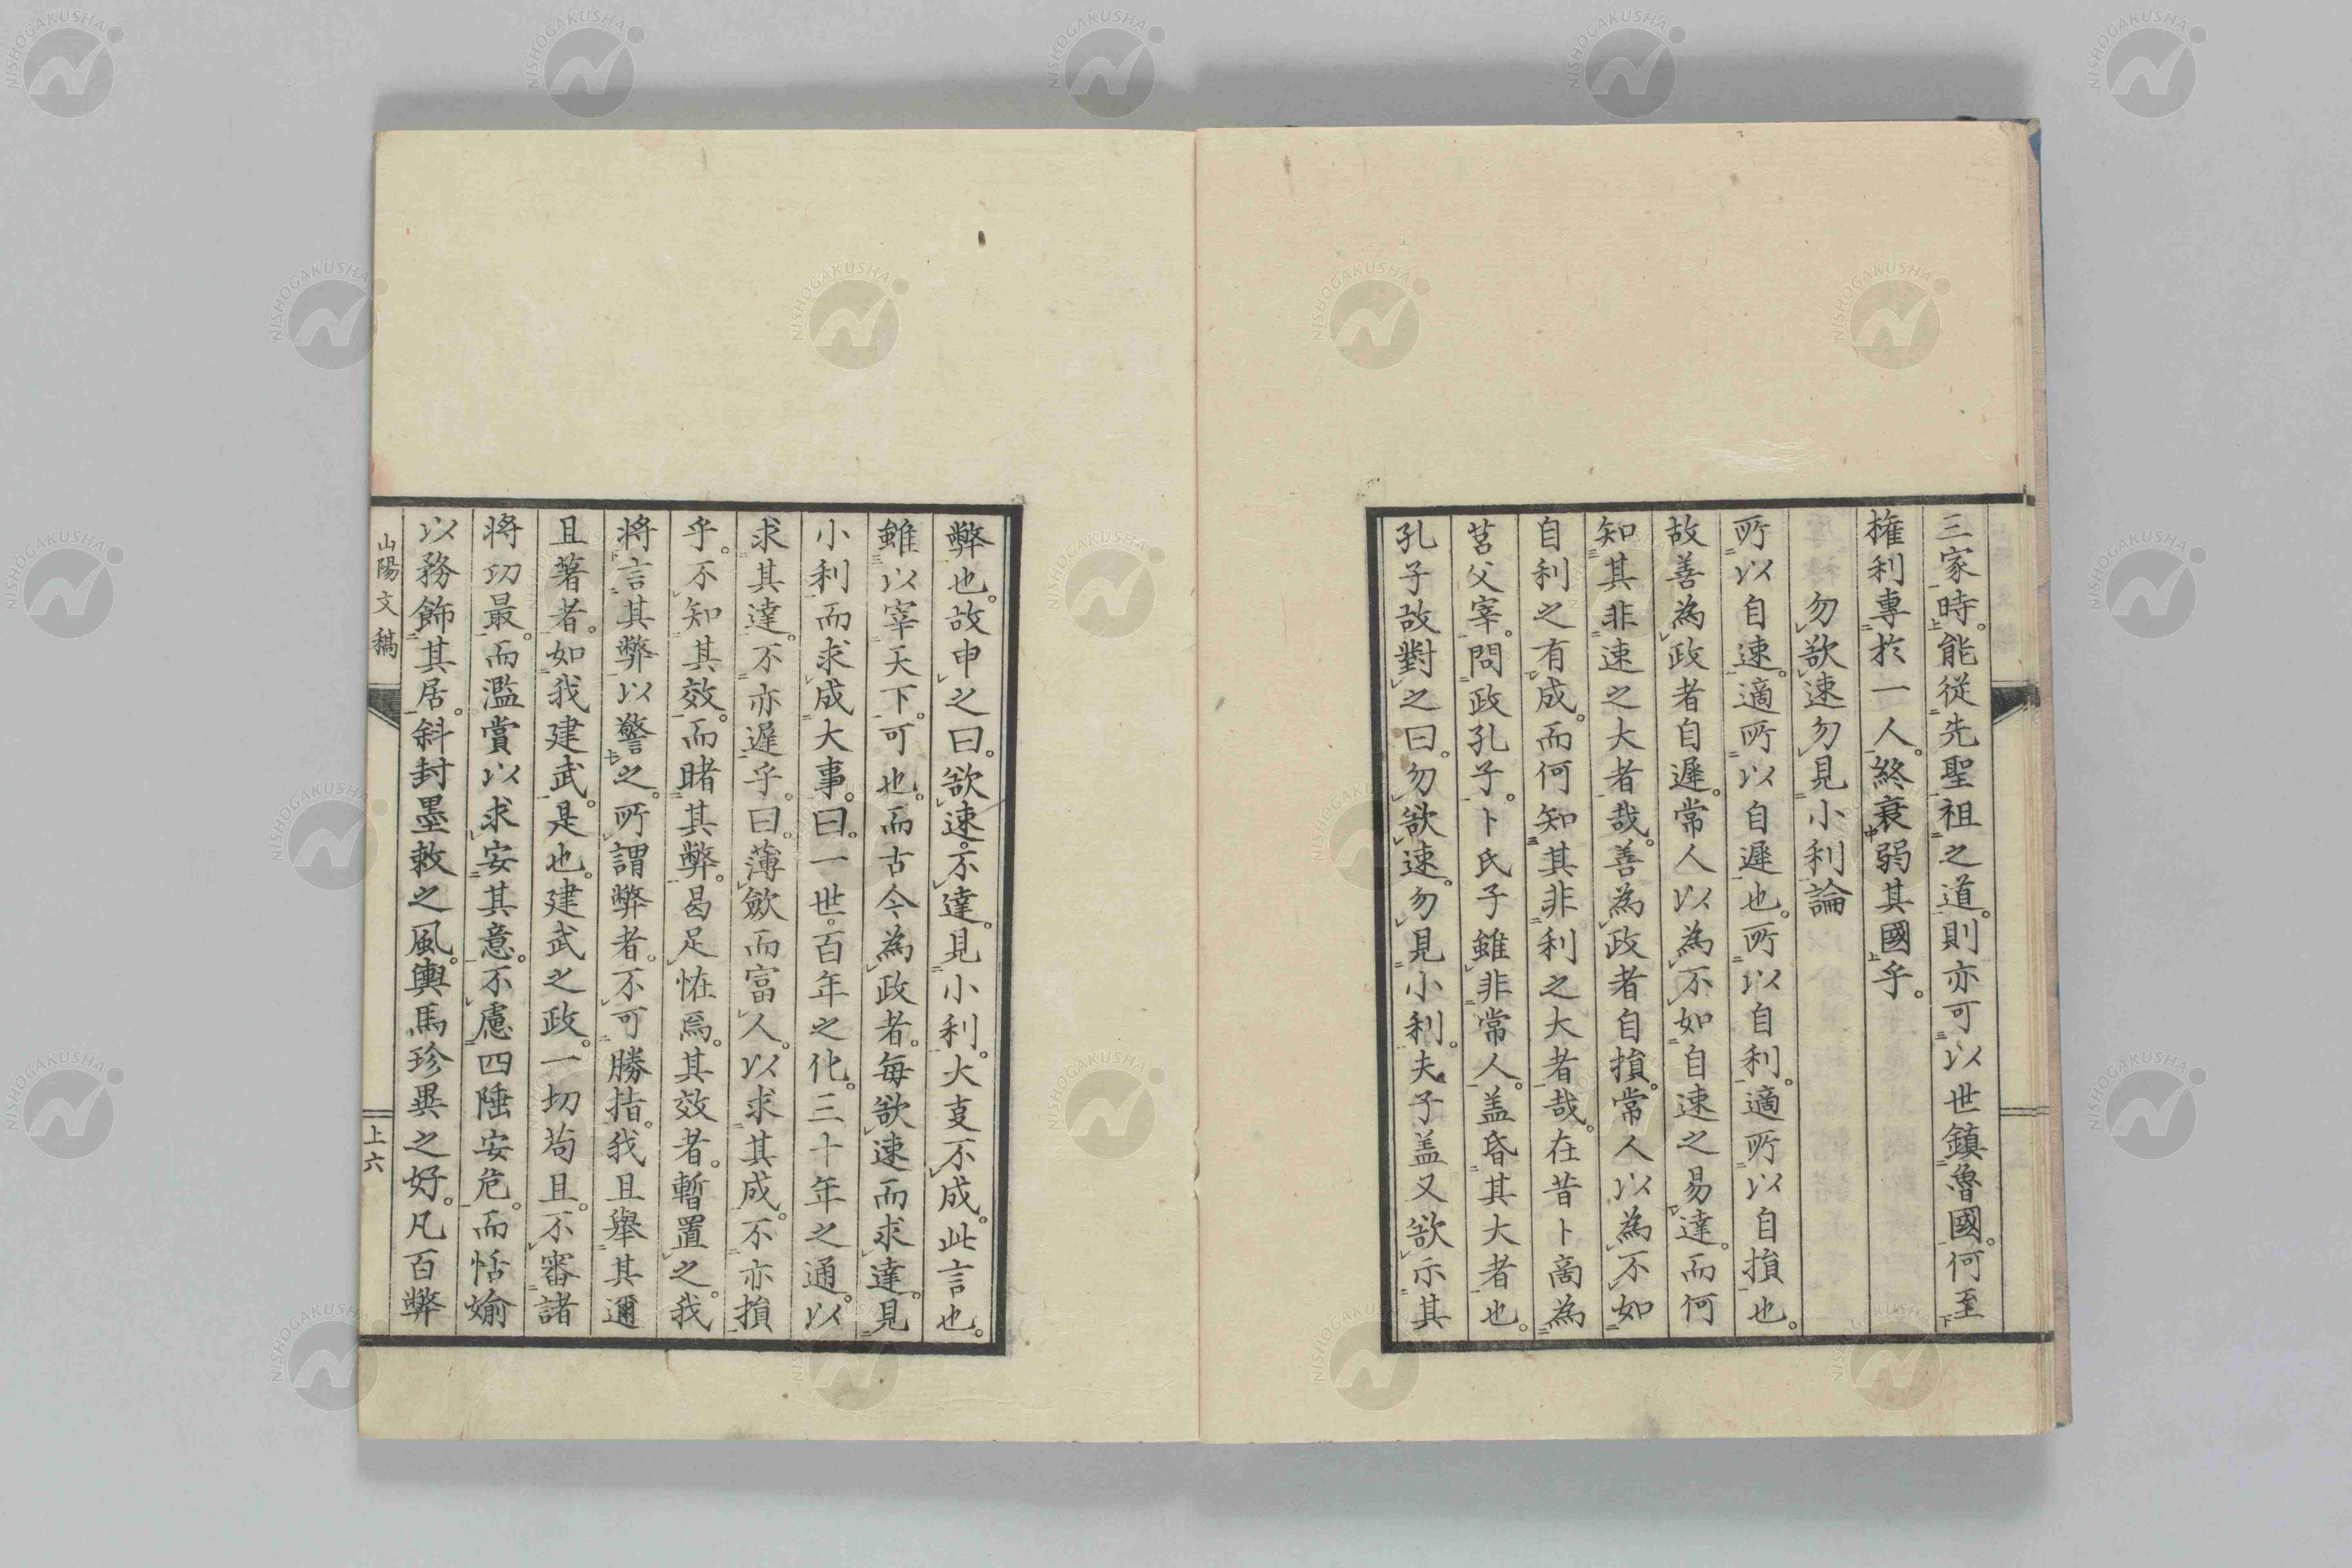 三家時。能從先聖祖之道。則亦可以世鎮魯國。何至
權利專於一人。終衰弱其國乎。
勿欲速勿見小利論
所以自速。適所以自遲也。所以自利。適所以自損也。
故善為政者自遲。常人以為不如自速之易達。而何
知其非速之大者哉。善為政者自損。常人以為不如
自利之有成。而何知其非利之大者哉。在昔卜啇為
莒父宰。問政孔子。卜氏子雖非常人。盖昏其大者也。
孔子故對之曰。勿欲速。勿見小利。夫子盖又欲示其
弊也。故申之曰。欲速。不達。見小利。大㕝不成。此言也。
雖以宰天下。可也。而古今為政者。每欲速而求達。見
小利而求成大事。曰。一世。百年之化。三十年之通。以
求其達。不亦遲乎。曰。薄斂而富人。以求其成。不亦損
乎。不知其效。而睹其弊。曷足恠焉。其效者。暫置之。我
將言其弊以警之。所謂弊者。不可勝指。我且舉其邇
且著者。如我建武。是也。建武之政。一切苟且。不審諸
將功最。而濫賞以求安其意。不慮四陲安危。而恬婾
以務飾其居。斜封墨敕之風。輿馬珍異之好。凡百弊
山陽文稿
上六
NISHOGAKUSHA